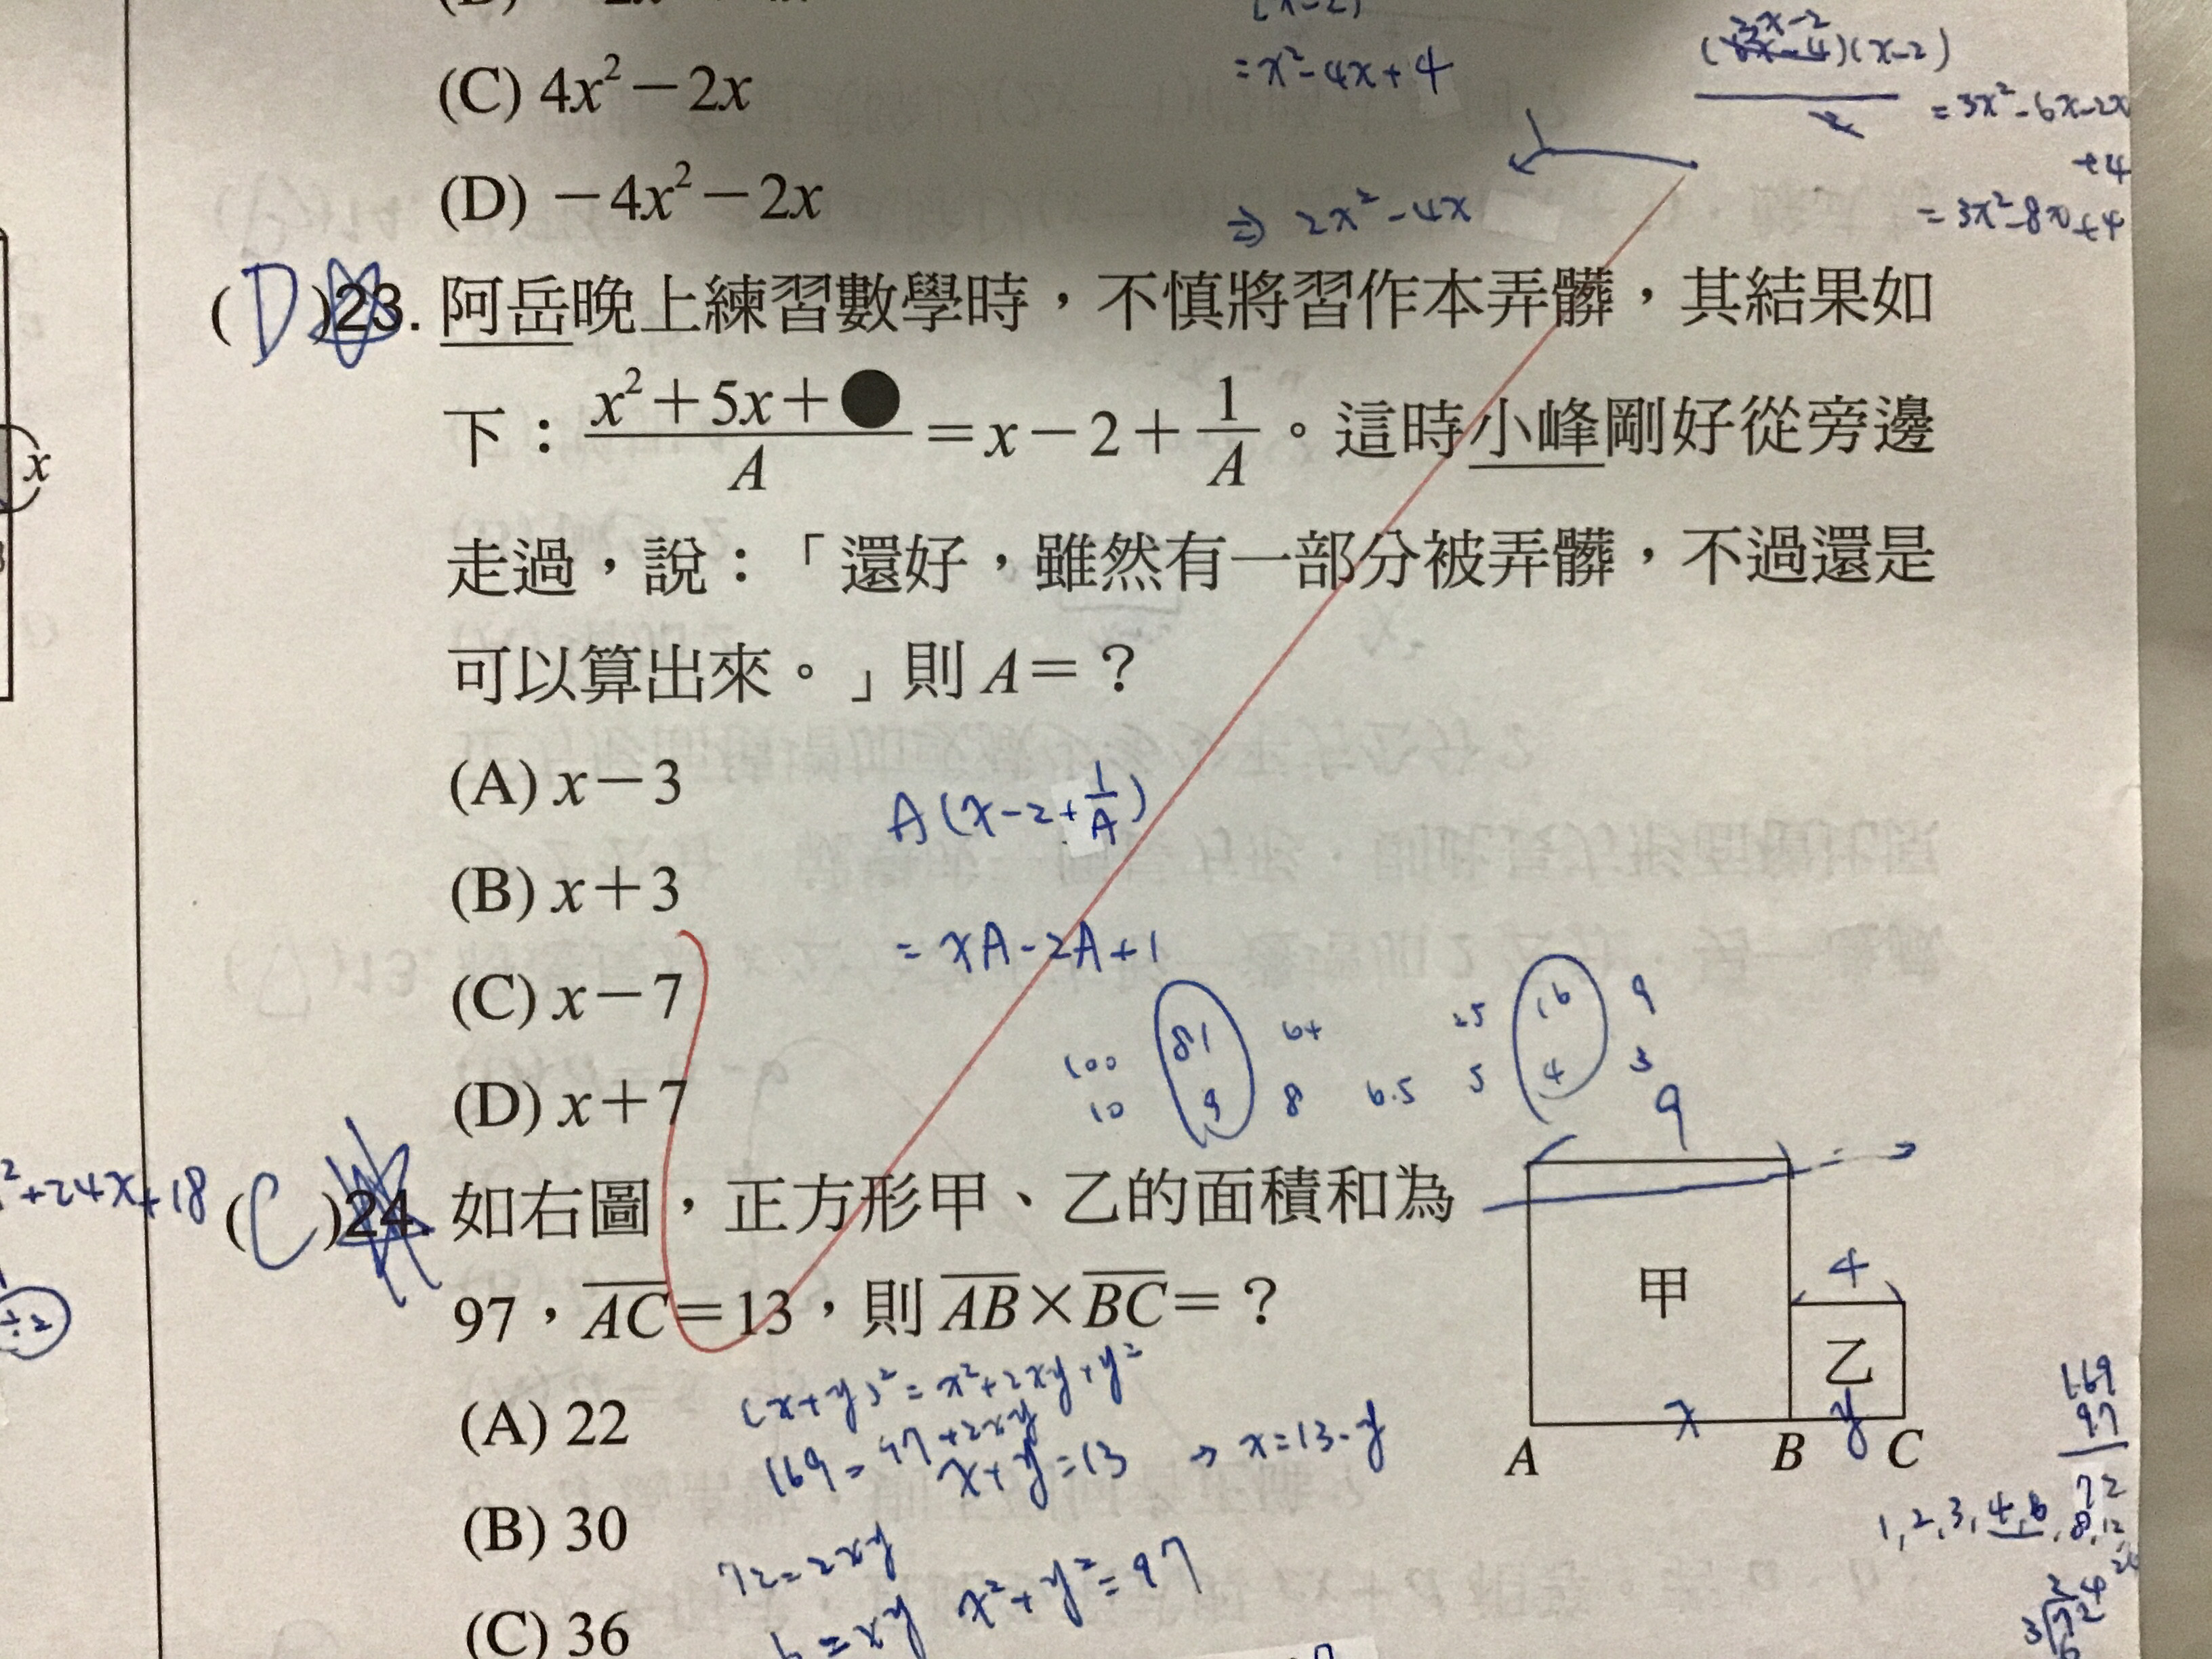 (C) 4x²－2x
(D) －4x²－2x
= x²-4x+4
⇒ 2x²-4x
(x-2)
= 3x²-6x-2x
+4
= 3x²-8x+4
(D)23. 阿岳晚上練習數學時，不慎將習作本弄髒，其結果如
下：(x²＋5x＋●)/A＝x－2＋1/A。這時小峰剛好從旁邊
走過，說：「還好，雖然有一部分被弄髒，不過還是
可以算出來。」則 A＝？
(A) x－3
(B) x＋3
(C) x－7
(D) x＋7
A(x-2+1/A)
= xA-2A+1
100 81 64 25 16 9
10 9 8 6.5 5 4 3
x
²+24x+18
÷2
(C)24. 如右圖，正方形甲、乙的面積和為
97，AC＝13，則 AB×BC＝？
(A) 22
(B) 30
(C) 36
9
甲
4
乙
x y
A B C
(x+y)²=x²+2xy+y²
169=97+2xy
x+y=13 → x=13-y
72=2xy
x²+y²=97
=xy
169
97
72
1,2,3,4,6,8,12,
24
3